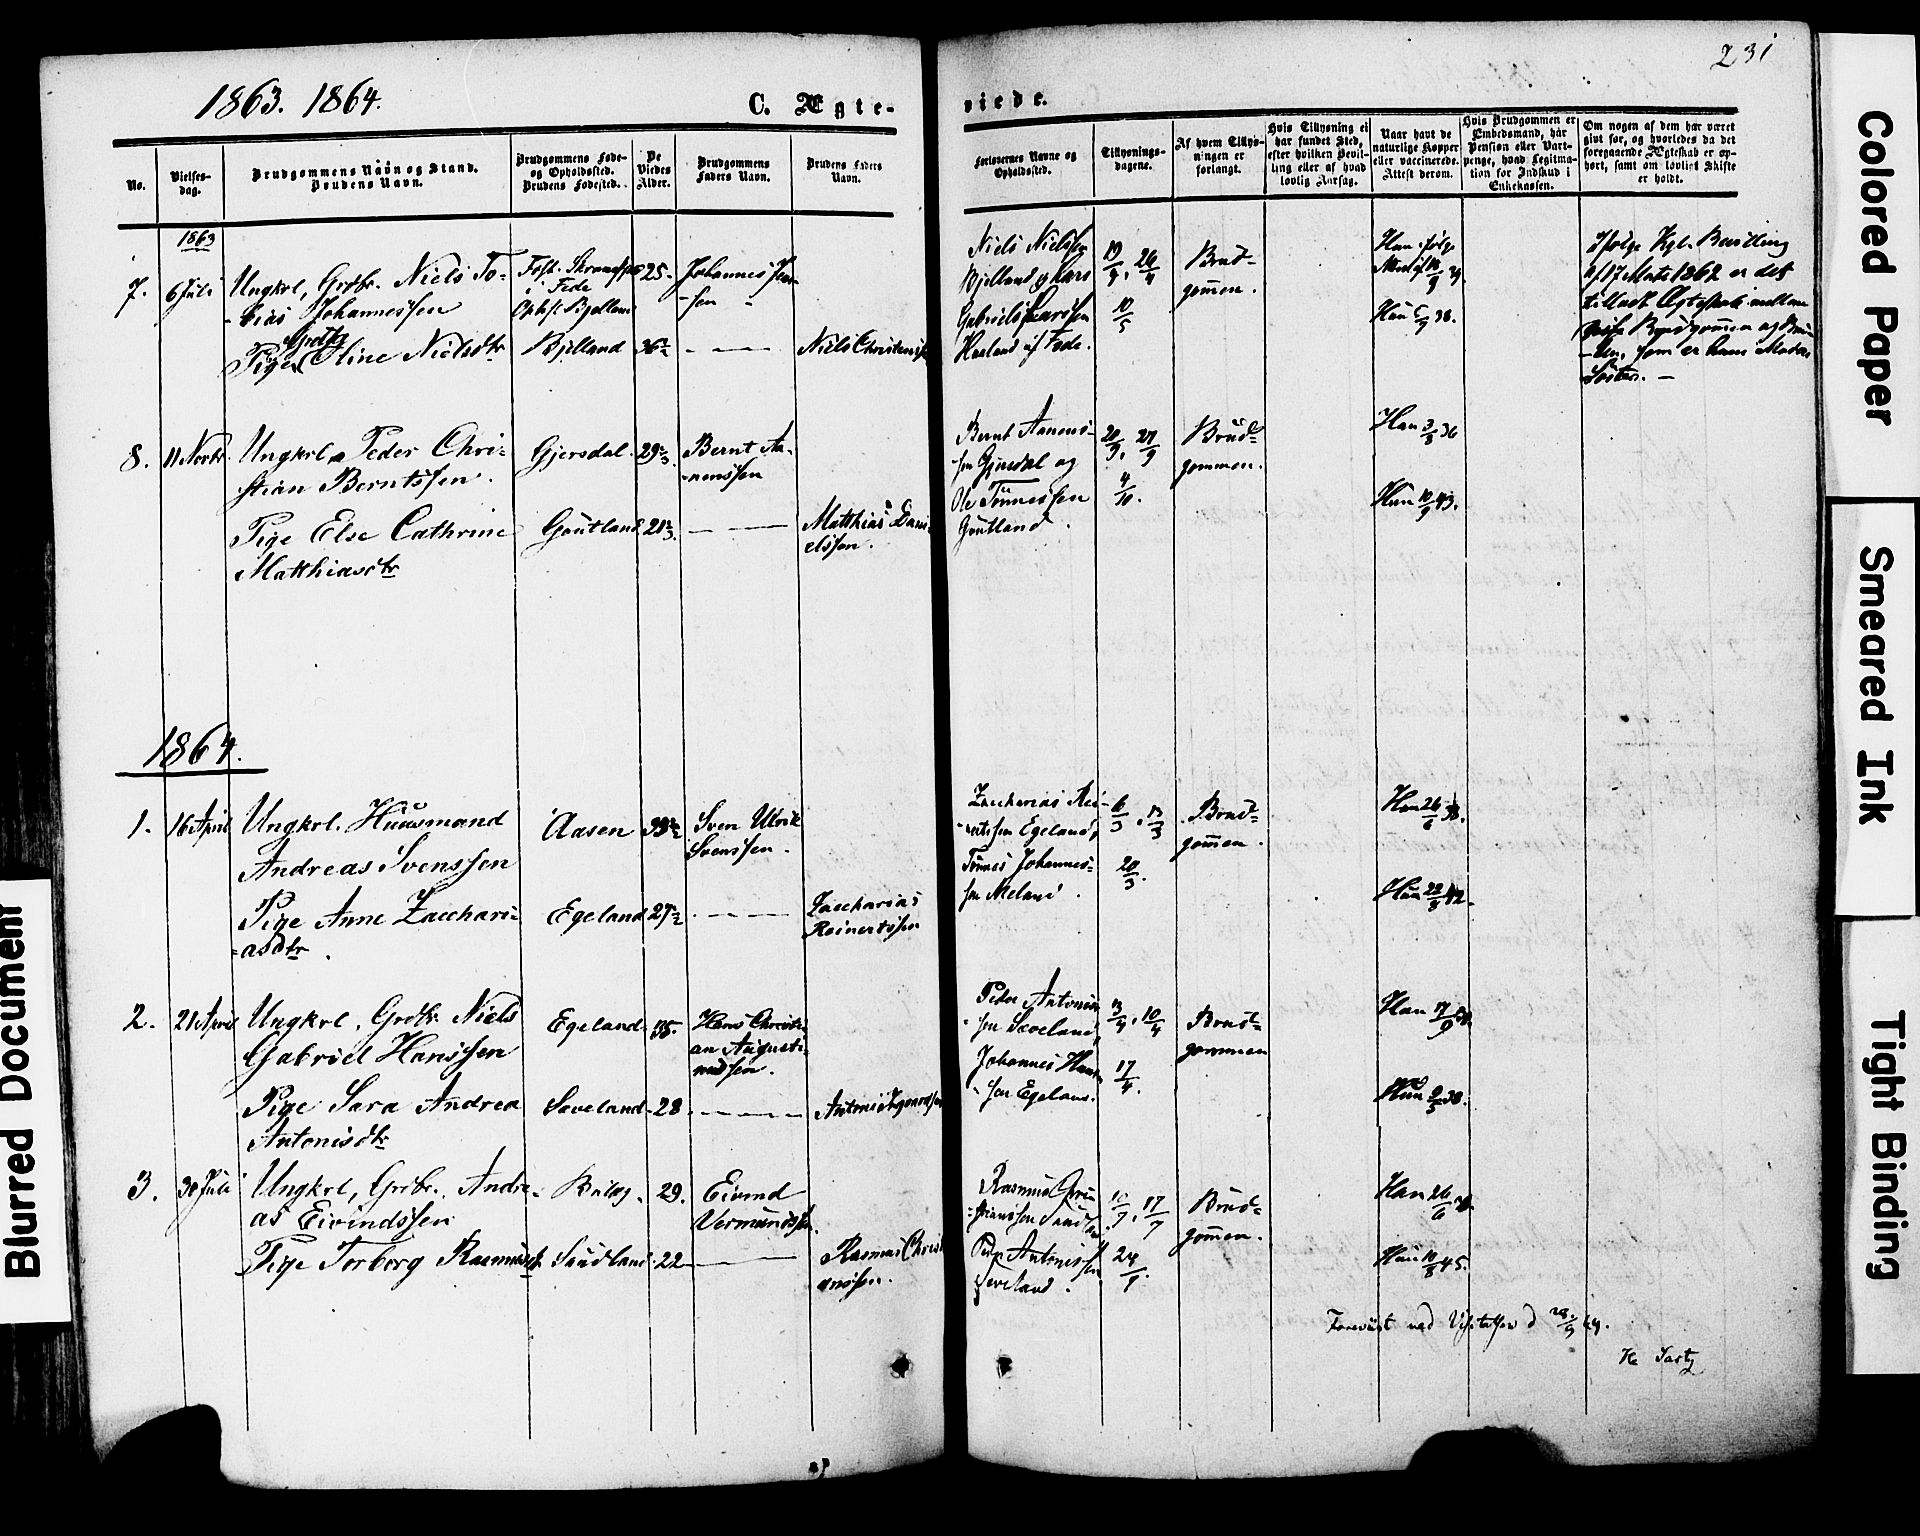 231
1863. 1864.
C. Ægte-
viede.
No.
Vielses-
dag.
Brudgommens Navn og Stand.
Brudens Navn.
Brudgommens Føde-
og Opholdssted.
Brudens Fødested.
De
Viedes
Alder.
Brudgommens
Faders Navn.
Brudens Faders
Navn.
Forlovernes Navne og
Opholdssted.
Tillysnings-
dagene.
Af hvem Tillys-
ningen er
forlangt.
Hvis Tillysning ei
har fundet Sted,
efter hvilken Bevil-
ling eller af hvad
lovlig Aarsag.
Naar havt de
naturlige Kopper
eller vaccinerede.
Attest derom.
Hvis Brudgommen er
Embedsmand, har
Pension eller Vart-
penge, hvad Legitima-
tion for Indskud i
Enkekassen.
Om nogen af dem har været
gift før, og hvorledes da det
foregaaende Ægteskab er op-
hørt, samt om lovligt Skifte
er holdt.
1863
7.
6 Juli
Ungkrl, Grdbr. Niels To-
-bias Johannessen
Pige Oline Nielsdtr
i Fede
Bjelland
25
Johannes
-sen
Niels Christens
Niels Nielssen
Bjelland og Lars
Gabriel Larssen
af Fede.
19/4, 26/4
10/5
Brud-
gommen.
Han ifølge
Hun 38.
Ifølge Kgl. Bevilling
af 17 Marts 1862 er det
tilladt Ægteskab mellem
Brudgommen og Bru
-den, som er hans Moders
Søster. —
8.
11 Novbr.
Ungkrl. Peder Chri-
stian Berntssen.
Pige Else Cathrine
Matthiasdtr
Gjersdal.
Goutland
29
21
Bernt Aa-
-nenssen
Matthias Dani-
elssen.
Bernt Aanens-
-sen Gjersdal og
Ole Tönnessen
Goutland.
20/9, 27/9
4/10.
Brud-
gommen.
Han 3/8 36
Hun 10/9 43.
1864.
1.
16 April
Ungkrl. Huusmand
Andreas Svenssen
Pige Anne Zacchari-
=asdtr.
Aasen
Egeland
33
27
Sven Ulrik
Svenssen.
Zaccharias
Reinertssen
Zaccharias Rei-
-nertssen Egeland,
Tönnes Johannes-
sen Meland.
6/3, 13/3
20/3.
Brud-
gommen.
Han 26/6 38.
Hun 22/8 42.
2.
21 April
Ungkrl, Grdbr. Niels
Gabriel Hanssen
Pige Sara Andrea
Antonisdtr
Egeland
Saveland
35.
28
Hans Christi-
an Augusti-
nussen.
Peder Antonis-
-sen Sæveland,
Johannes Hans-
-sen Egeland.
3/4, 10/4
17/4.
Brud-
gommen
Han
Hun
3.
30 Juli
Ungkrl, Grdbr. Andre-
as Eivindssen
Pige Torborg Rasmusdtr
Sandland
29.
22
Eivind
Vermundssen.
Rasmus Christi
anssen.
Rasmus
Peder Antonissen
Seveland.
10/7, 17/7
24/7.
Brud-
gommen.
Han 26/6
Hun 10/8 45.
Forevist ved Visitatsen d 28/9 64.
Colored Paper
Smeared Ink
Tight Binding
Blurred Document